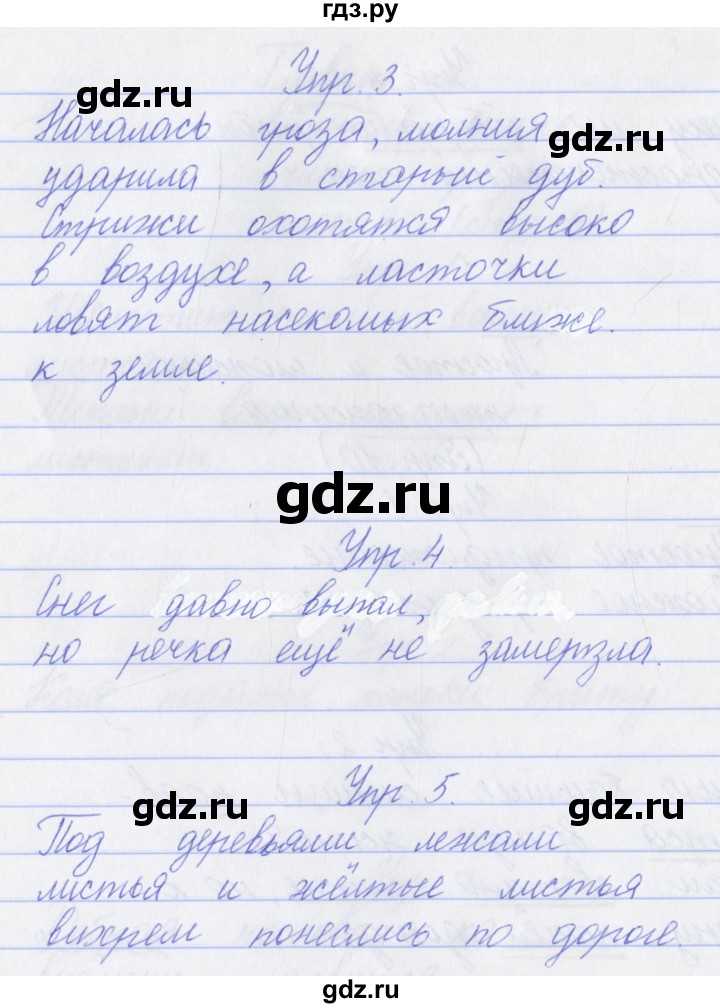 гдз.ру
Упр. 3.
gdz.ru
Началась гроза, молния
gdz.ru
ударила в старый дуб.
Стрижи охотятся высоко
в воздухе, а ласточки
ловят насекомых ближе.
к земле.
gdz.ru
Упр. 4.
Снег давно выпал,
но речка ещё не замерзла.
Упр. 5.
gdz.ru
gdz.ru
Под деревьями лежали
листья и жёлтые листья
вихрем понеслись по дороге.
gdz.ru